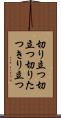 切り立つ切
立つ切りた
つきり立つ